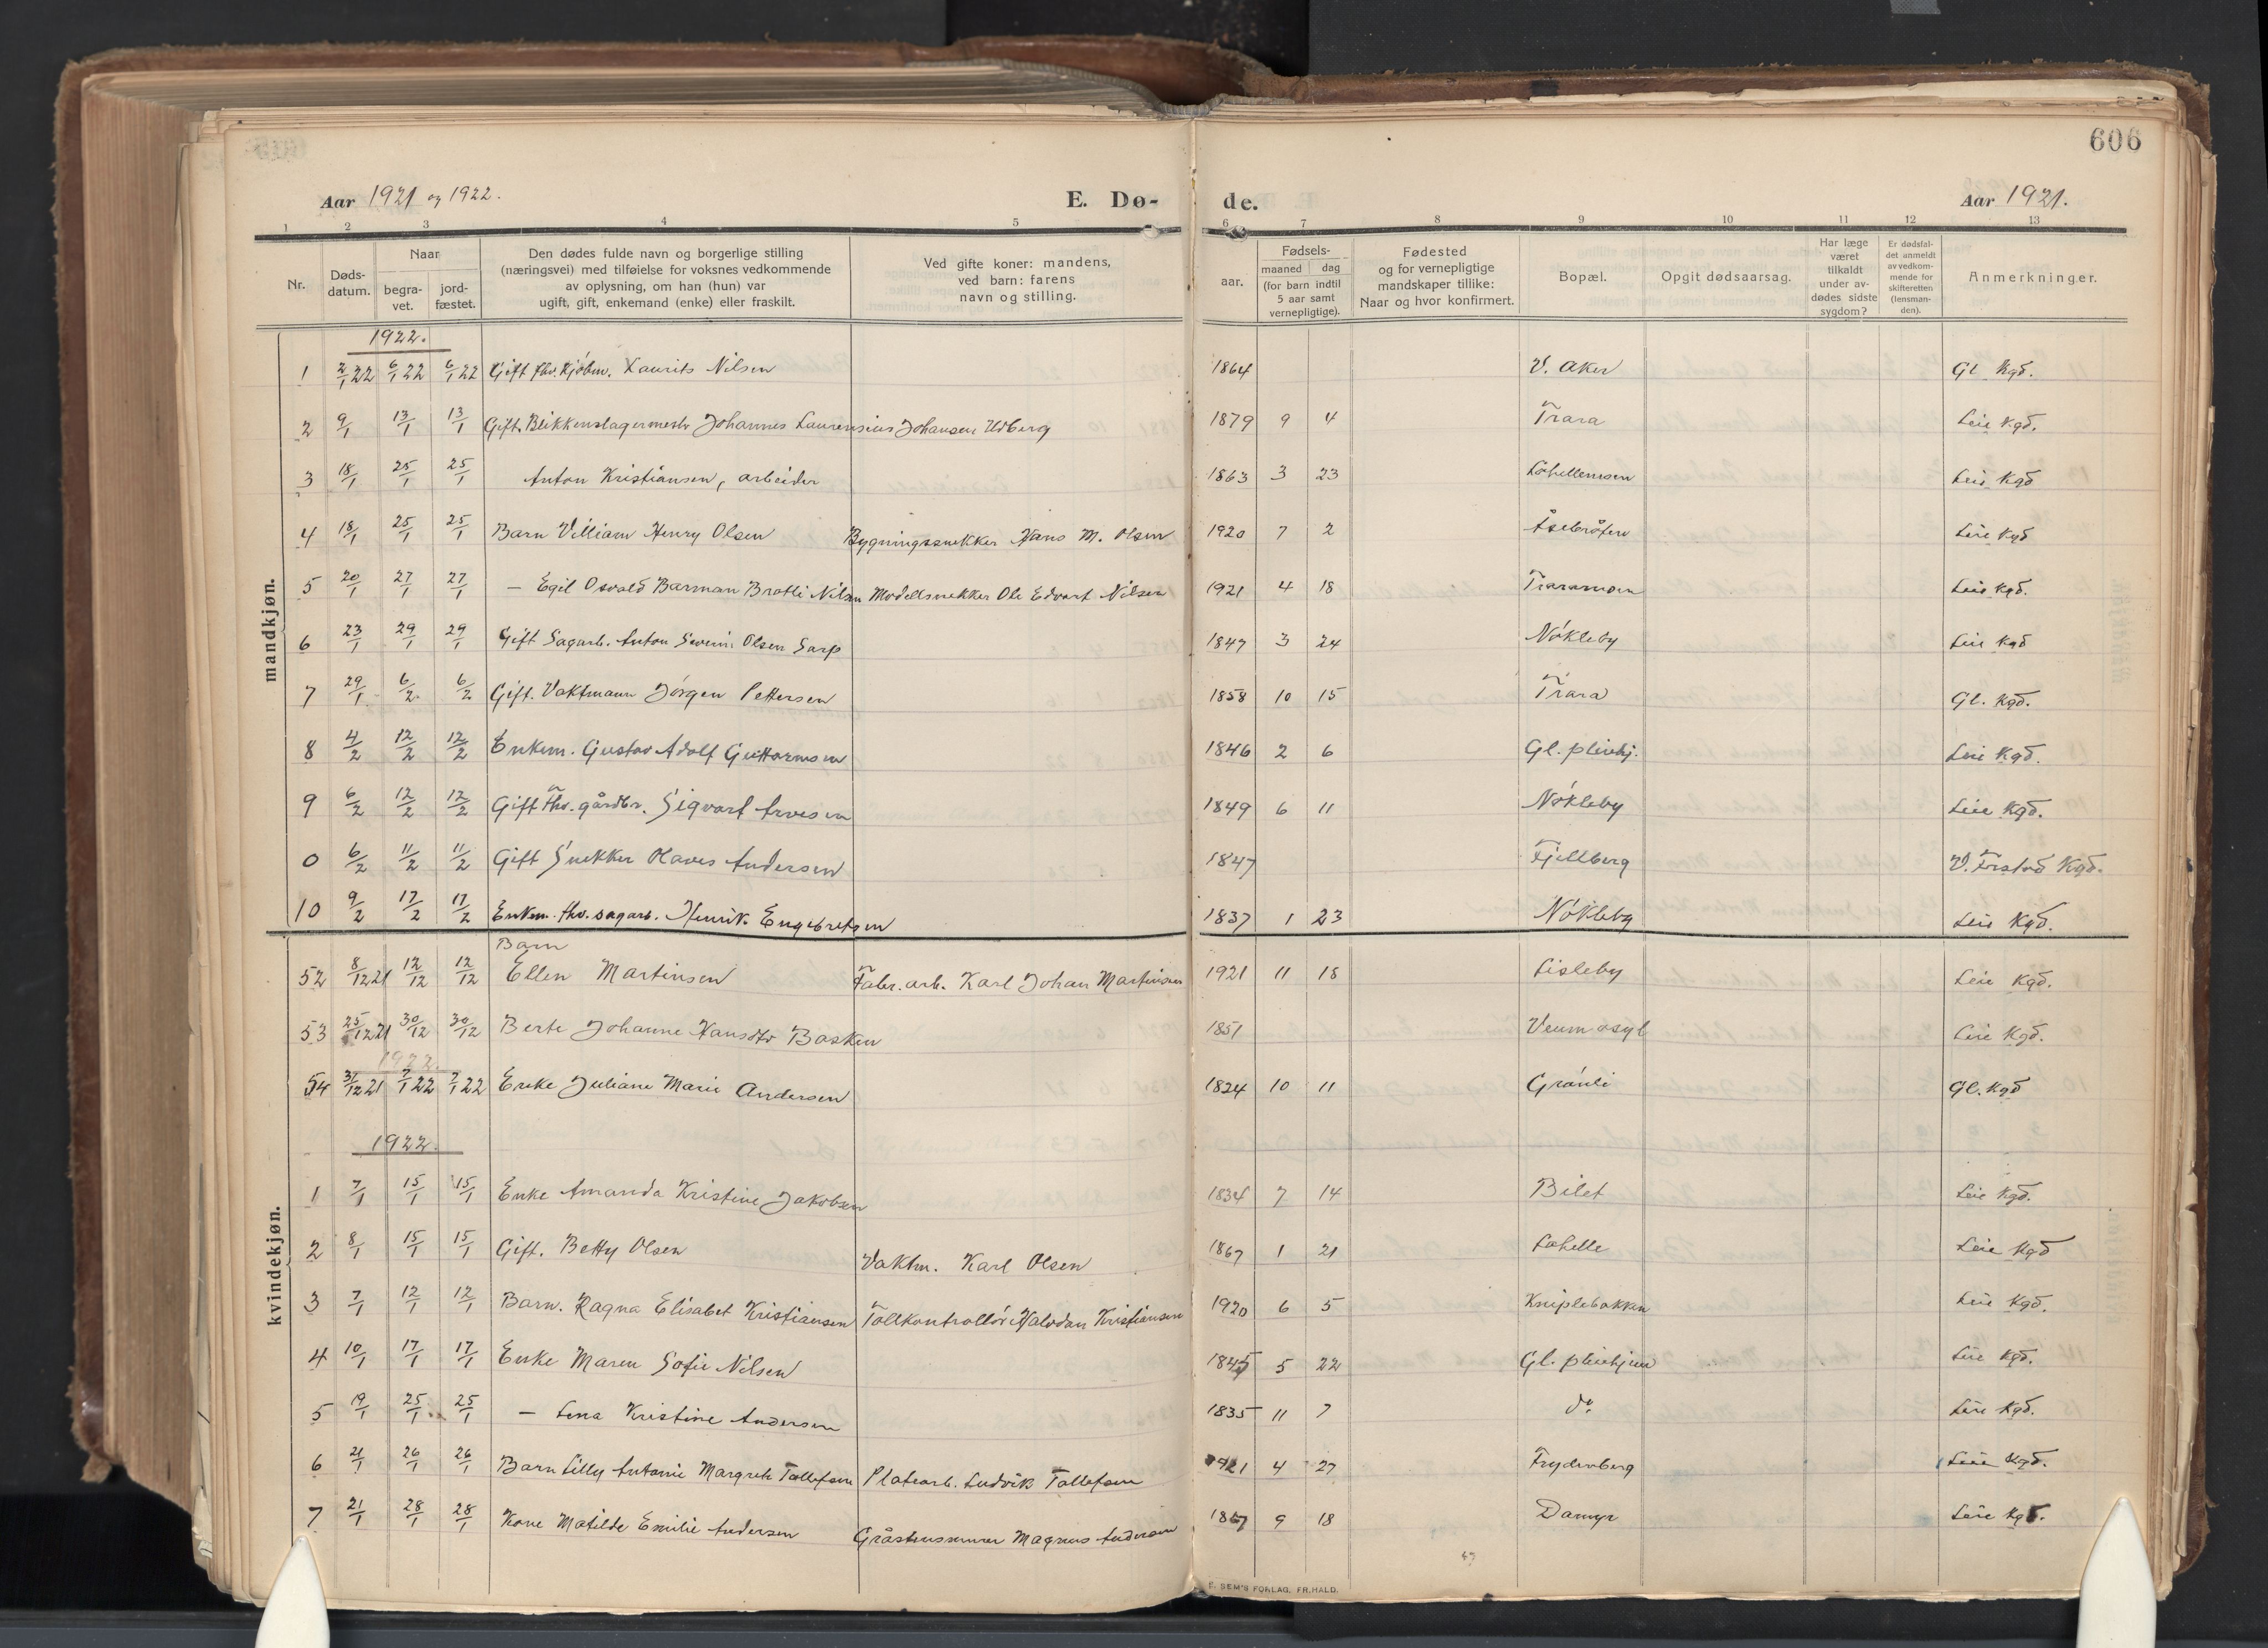 606
Aar 1921 og 1922. E. Dø- de. Aar 1921.
1 2 3 4 5 6 7 8 9 10 11 12 13
Nr. Døds-datum. Naar begra-vet. jord-fæstet. Den dødes fulde navn og borgerlige stilling (næringsvei) med tilføielse for voksnes vedkommende av oplysning, om han (hun) var ugift, gift, enkemand (enke) eller fraskilt. Ved gifte koner: mandens, ved barn: farens navn og stilling. aar. Fødsels- maaned dag (for barn indtil 5 aar samt vernepligtige). Fødested og for vernepligtige mandskaper tillike: Naar og hvor konfirmert. Bopæl. Opgit dødsaarsag. Har læge været tilkaldt under av-dødes sidste sygdom? Er dødsfal-det anmeldt av vedkom-mende for skifteretten (lensman-den). Anmerkninger.
mandkjøn.
1922.
1 2/1 22 6/1 22 6/1 22 Gift fhv. Kjøbm. Laurits Nilsen 1864 V. Aker Gl. Kgd.
2 9/1 13/1 13/1 Gift. Blikkenslagermestr Johannes Laurensius Johansen Udberg 1879 9 4 Trara Leie Kgd.
3 18/1 25/1 25/1 Anton Kristiansen, arbeider 1863 3 23 Leie Kgd
4 18/1 25/1 25/1 Barn Villiam Henry Olsen Bygningssnekker Hans M. Olsen 1920 7 2 Leie Kgd
5 20/1 27/1 27/1 — Egil Osvald Barman Bratli Nilsen Modellsnekker Ole Edvart Nilsen 1921 4 18 Traramoen Leie Kgd.
6 23/1 29/1 29/1 Gift Sagarb. Anton Severin Olsen Sarp 1847 3 24 Nøkleby Leie Kgd
7 29/1 6/2 6/2 Gift. Vaktmann Jørgen Pettersen 1858 10 15 Trara Gl. Kgd.
8 4/2 12/2 12/2 Enkem. Gustav Adolf Guttormsen 1846 2 6 Gl. pleiehj. Leie Kgd.
9 6/2 12/2 12/2 Gift fhv. gårdbr. Sigvart Arvesen 1849 6 11 Nøkleby Leie Kgd.
0 6/2 11/2 11/2 Gift Snekker Olaves Andersen 1847 Fjellberg V. Frstad Kgd.
10 9/2 17/2 17/2 Enkem. fhv. sagarb. Henrik Engebretsen 1837 1 23 Nøkleby Leie Kgd.
kvindekjøn.
Barn
52 8/12 21 12/12 12/12 Ellen Martinsen Fabr. arb. Karl Johan Martinsen 1921 11 18 Lisleby Leie Kgd.
53 25/12 21 30/12 30/12 Berte Johanne Hansdtr Basken 1851 Veum asyl Leie Kgd.
1922.
54 31/12 21 7/1 22 7/1 22 Enke Juliane Marie Andersen 1824 10 11 Grønli Gl. Kgd
1922.
1 7/1 15/1 15/1 Enke Amanda Kristine Jakobsen 1834 7 14 Bilet Leie Kgd.
2 8/1 15/1 15/1 Gift. Betty Olsen Vaktm. Karl Olsen 1867 1 21 Lahelle Leie Kgd
3 7/1 12/1 12/1 Barn. Ragna Elisabet Kristiansen Tollkontrollør Halvdan Kristiansen 1920 6 5 Kniplebakken Leie Kgd.
4 10/1 17/1 17/1 Enke Maren Sofie Nilsen 1845 5 22 Gl. pleiehjem Leie Kgd.
5 19/1 25/1 25/1 — Lena Kristine Andersen 1835 11 7 do Leie Kgd.
6 21/1 26/1 26/1 Barn Lilly Antonie Margrete Tollefsen Platearb. Ludvik Tollefsen 1921 4 27 Frydenberg Leie Kgd.
7 21/1 28/1 28/1 Kone Matilde Emilie Andersen Gråstensmurer Magnus Andersen 1867 9 18 Damyr Leie Kgd.
E. SEM'S FORLAG, FR.HALD.